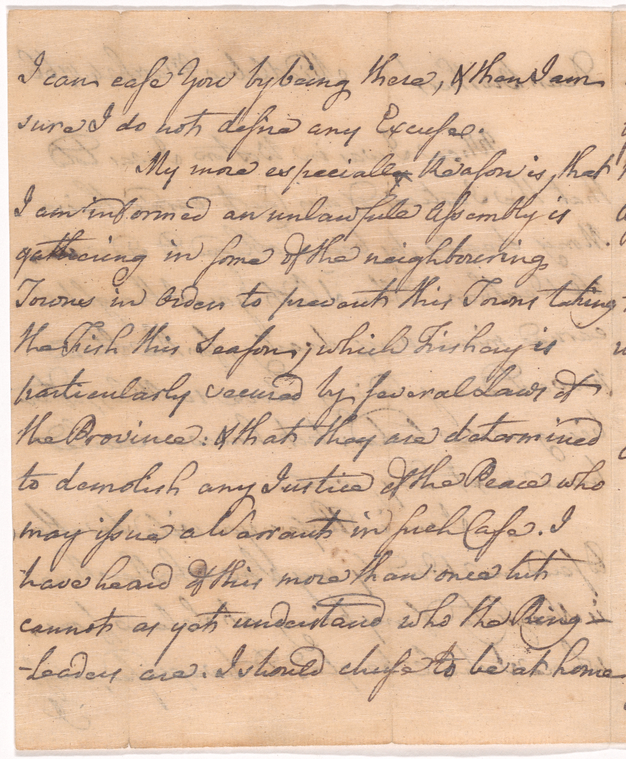 I can ease You by being there, & then I am
sure I do not desire any Excuse.
My more especially Reason is, that
I am informed an unlawfull Assembly is
gathering in some of the neighbouring
Towns in order to prevent this Town taking
the Fish this Season; which Fishery is
particularly secured by several Laws of
the Province: & that they are determined
to demolish any Justice of the Peace who
may issue a Warrant in such Case. I
have heard of this more than once but
cannot as yet understand who the Ring-
-leaders are. I should chuse to be at home